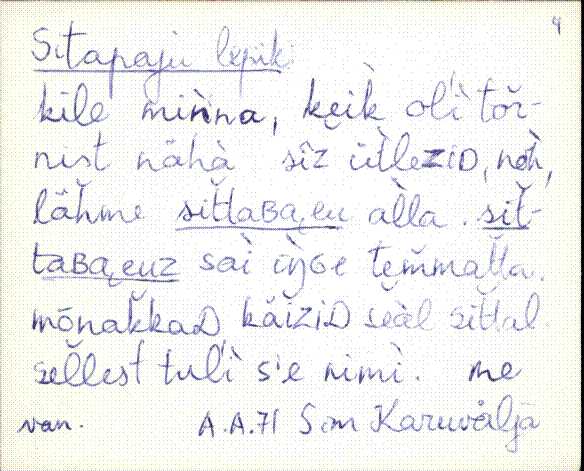 4
Sitapaju lepik
kile minna, keik oli tor̆-
nist nähà sîz ütlezID, nòh,
läh̆me sit̆taBa͔eu àlla. sit̆-
taBa͔euz saì iŋ̀Ge tem̆mat̆ta.
mōnak̆kaD käìziD seàl sit̆tal.
sel̆lest tuĺì s'e nimì. me
van. A.A.71 Sim Karuvälja